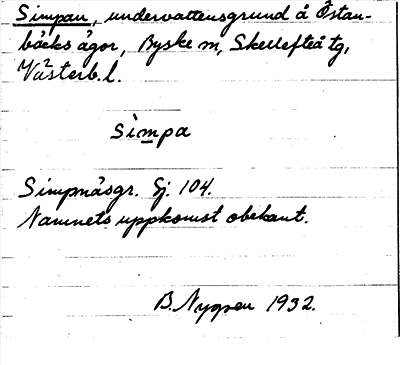 Simpan, undervattensgrund å Östan-
bäcks ägor, Byske sn, Skellefteå tg,
Västerb. l.
Simpa
Simpnäsgr. Sj. 104.
Namnets uppkomst obekant.
B. Nygren 1932.